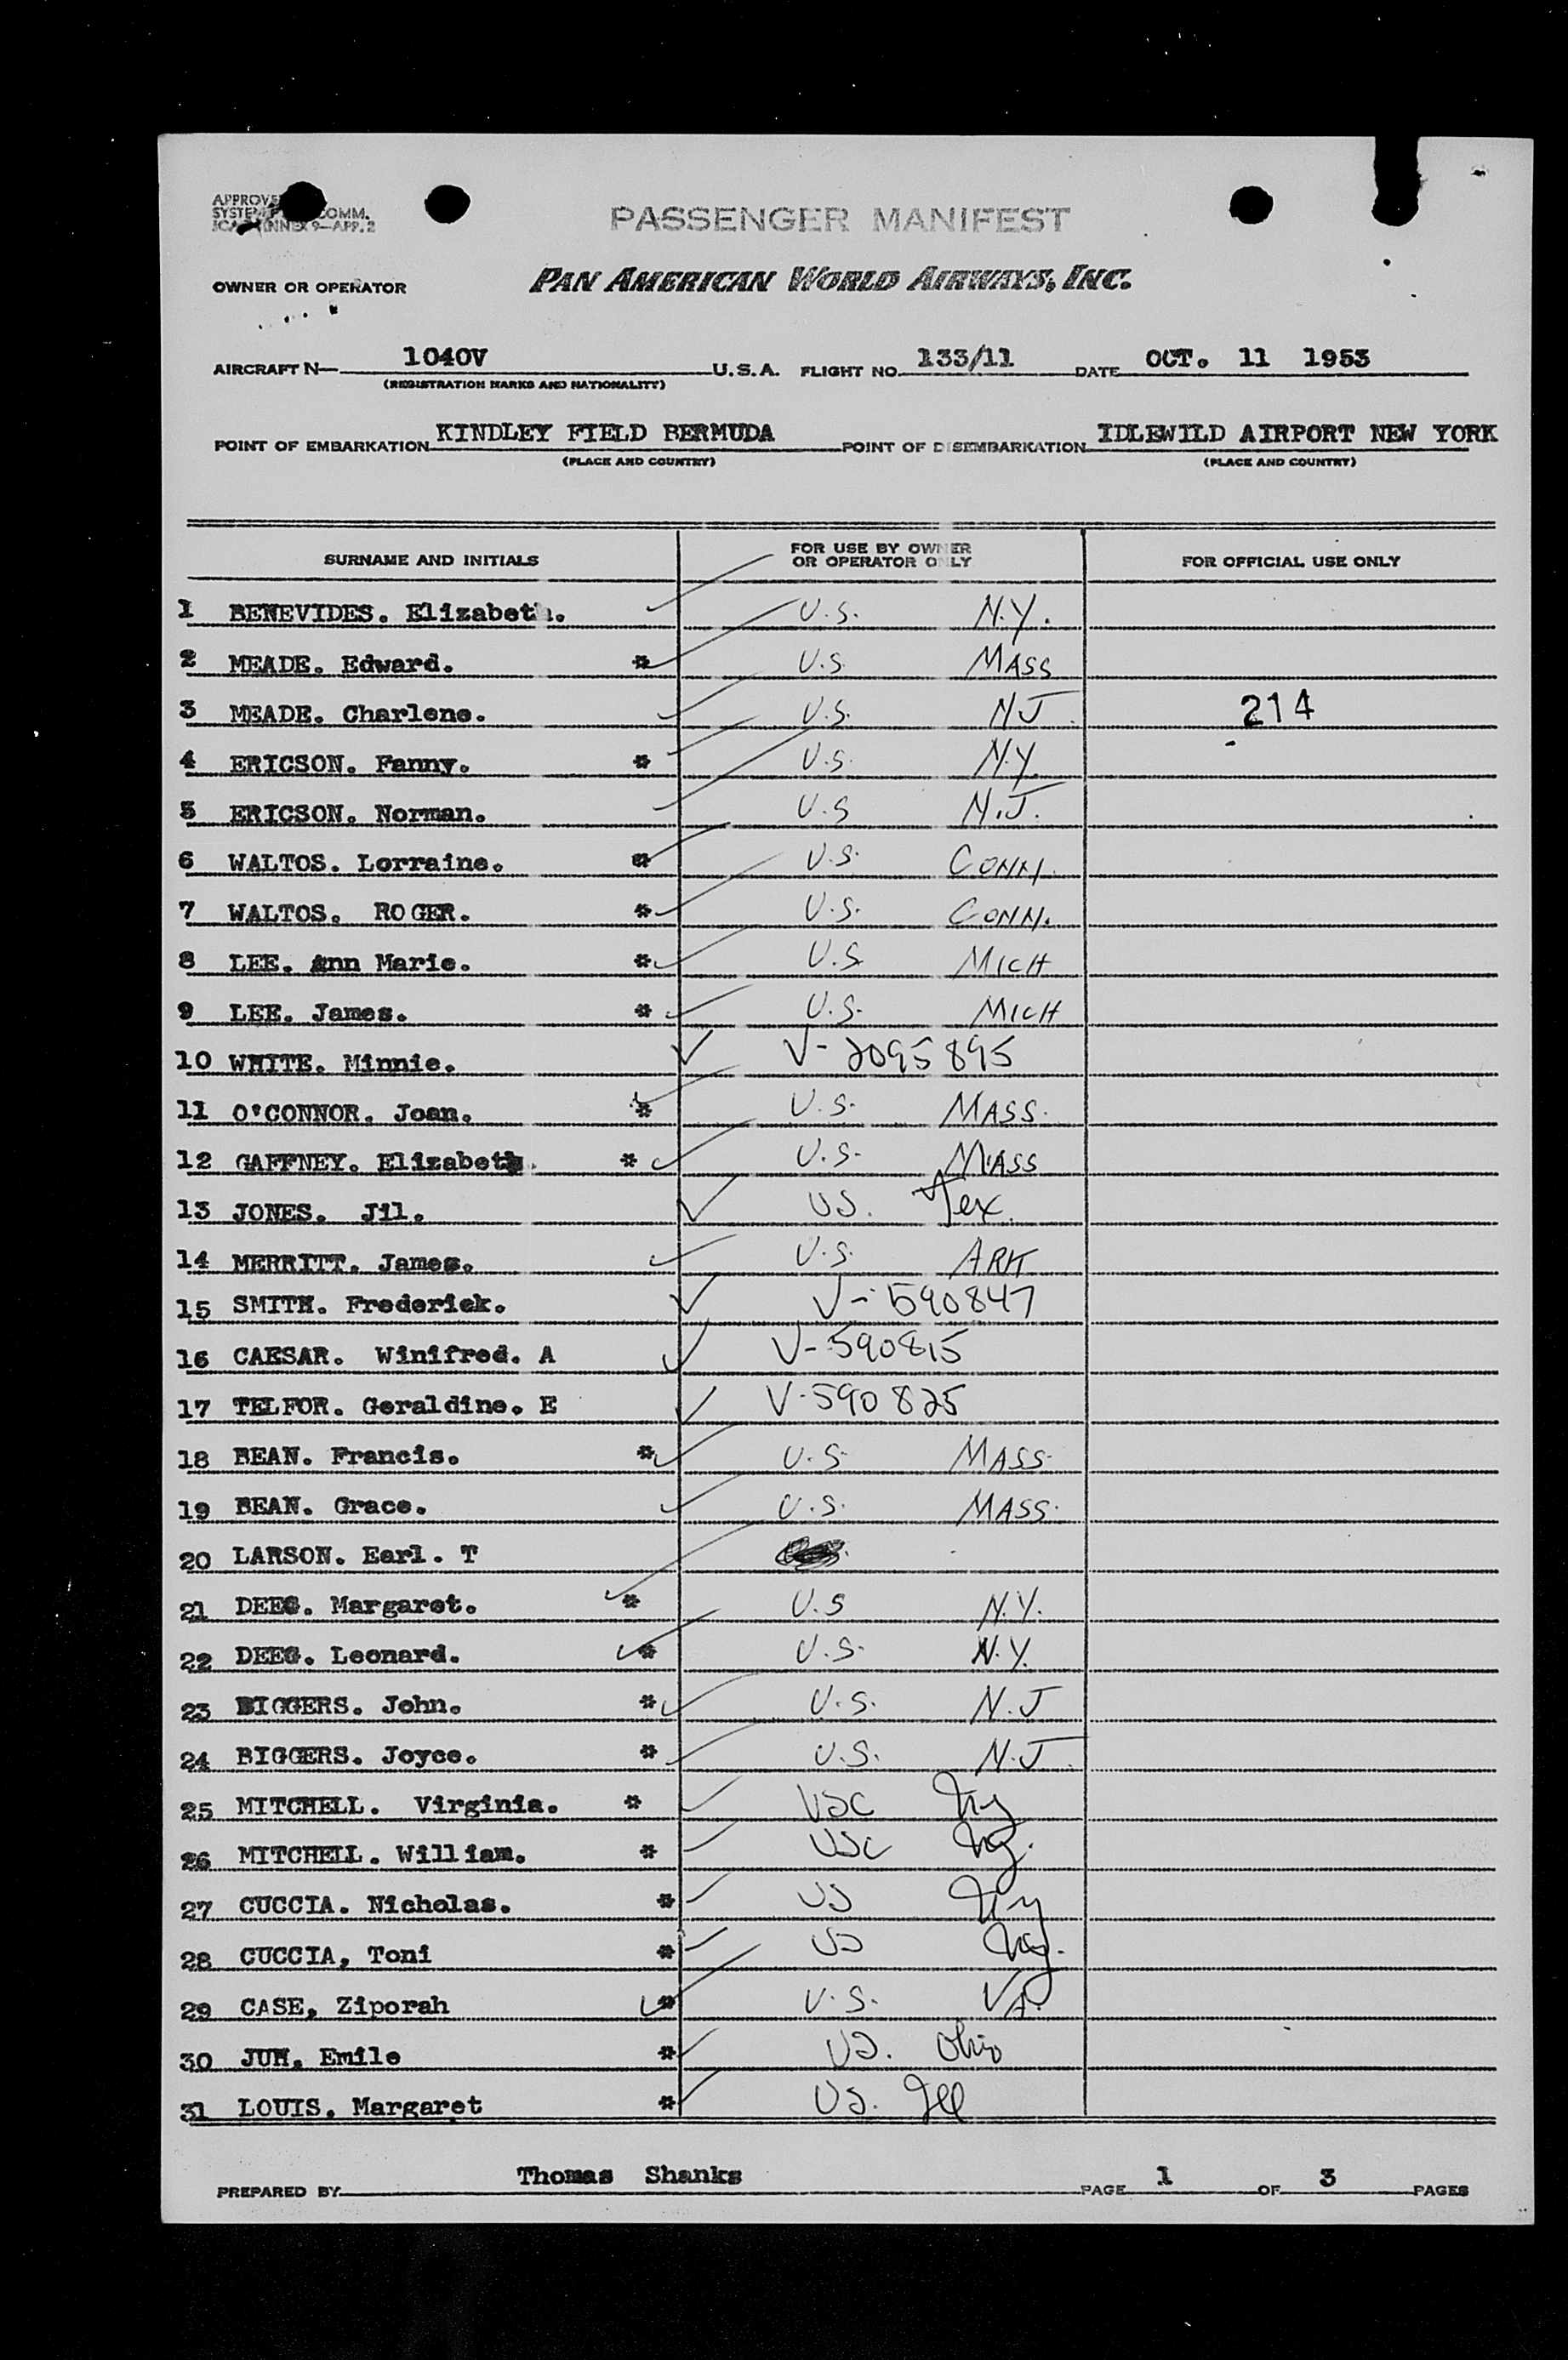 PASSENGER MANIFEST
OWNER OR OPERATOR PAN AMERICAN WORLD AIRWAYS, INC.
AIRCRAFT N— 1040V U.S.A. FLIGHT NO. 133/11 DATE OCT. 11 1953
(REGISTRATION MARKS AND NATIONALITY)
POINT OF EMBARKATION KINDLEY FIELD BERMUDA POINT OF DISEMBARKATION IDLEWILD AIRPORT NEW YORK
(PLACE AND COUNTRY) (PLACE AND COUNTRY)
SURNAME AND INITIALS FOR USE BY OWNER OR OPERATOR ONLY FOR OFFICIAL USE ONLY
1 BENEVIDES. Elizabeth. U.S. N.Y.
2 MEADE. Edward. * U.S. MASS
3 MEADE. Charlene. U.S. NJ 214
4 ERICSON. Fanny. * U.S. N.Y.
5 ERICSON. Norman. U.S N.J.
6 WALTOS. Lorraine. * U.S. CONN.
7 WALTOS. ROGER. * U.S. CONN.
8 LEE. Ann Marie. * U.S. MICH
9 LEE. James. * U.S. MICH
10 WHITE. Minnie. V-2095895
11 O'CONNOR. Joan. * U.S. MASS.
12 GAFFNEY. Elizabeth. * U.S. MASS
13 JONES. Jil. US. Tex.
14 MERRITT. James. U.S. ARK
15 SMITH. Frederick. V-590847
16 CAESAR. Winifred. A V-590815
17 TELFOR. Geraldine. E V-590825
18 BEAN. Francis. * U.S. MASS.
19 BEAN. Grace. U.S. MASS.
20 LARSON. Earl. T
21 DEEG. Margaret. * U.S N.Y.
22 DEEG. Leonard. * U.S. N.Y.
23 BIGGERS. John. * U.S. N.J
24 BIGGERS. Joyce. * U.S. N.J.
25 MITCHELL. Virginia. * USC Ny
26 MITCHELL. William. * USC Ny.
27 CUCCIA. Nicholas. * US Ny
28 CUCCIA, Toni * US Ny.
29 CASE, Ziporah * U.S. VA.
30 JUM, Emile * US. Ohio
31 LOUIS. Margaret * US. Ill
PREPARED BY Thomas Shanks PAGE 1 OF 3 PAGES